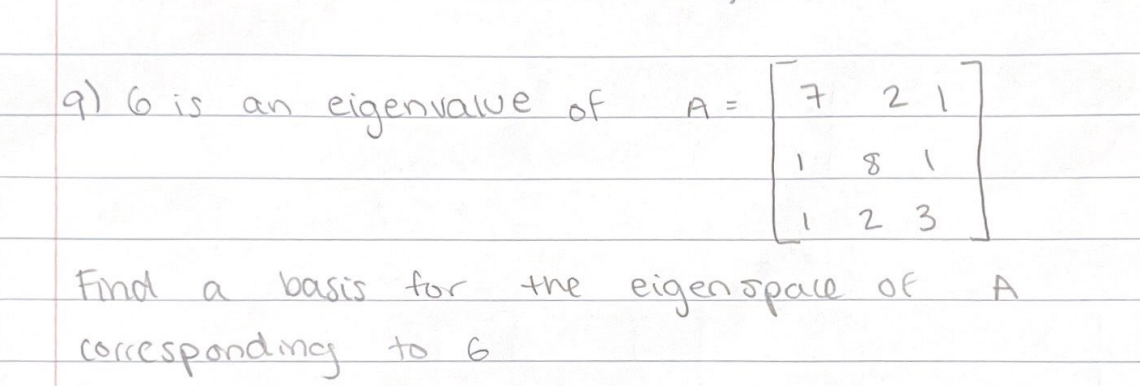 9) 6 is an eigenvalue of A = [ 7 2 1
1 8 1
1 2 3 ]
Find a basis for the eigenspace of A
corresponding to 6